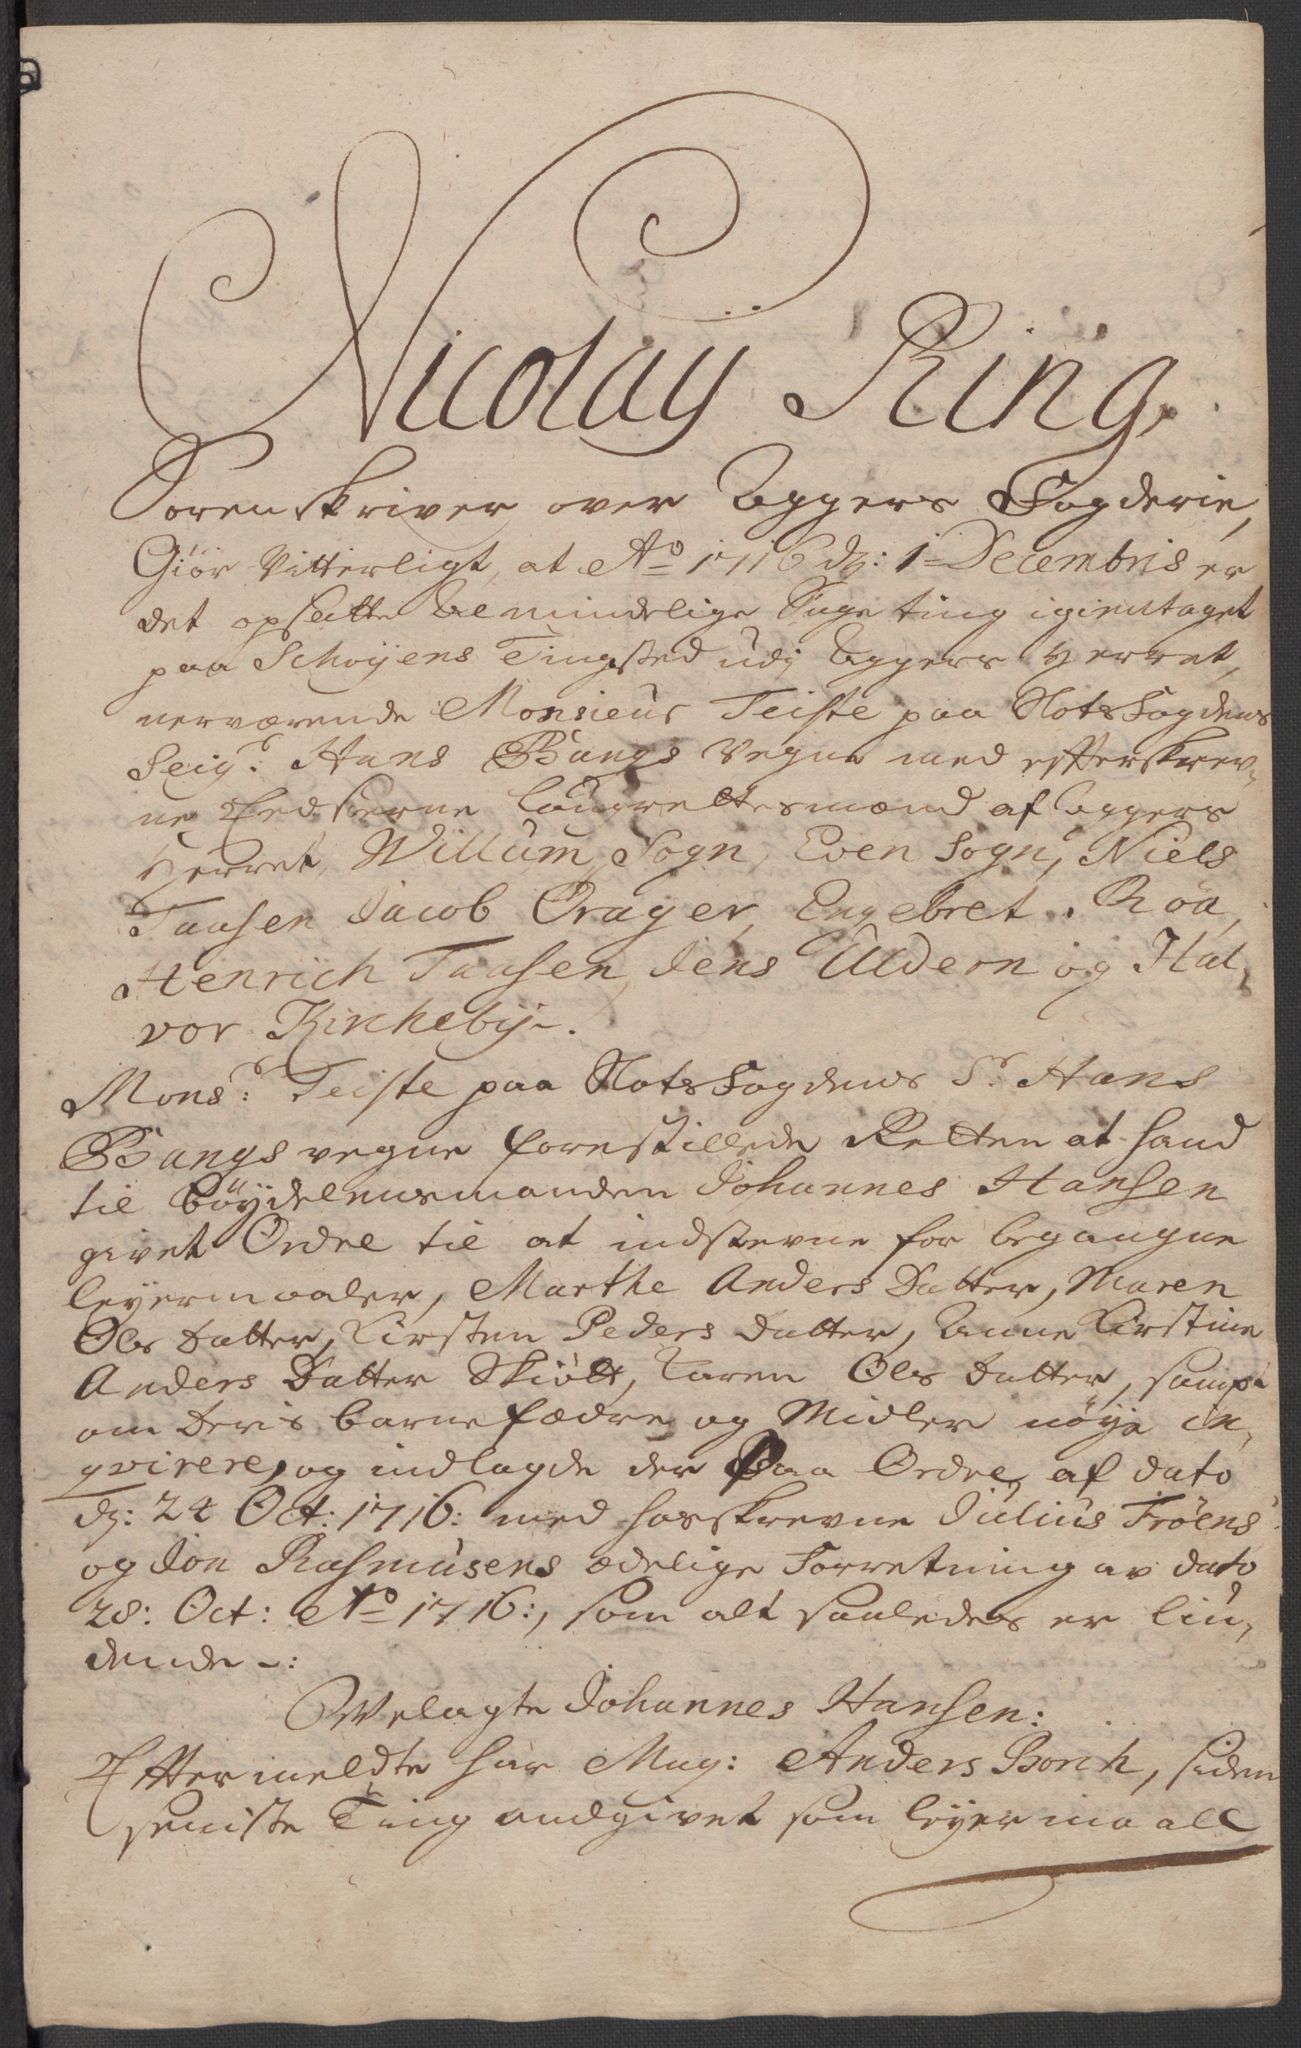 Nicolaÿ Ring,
Sorenskriver over Aggers Fogderie,
Giör Vitterligt, at Ao 1716 dj: 1 Decembris er
det opsatte Almindelige Sage ting igientaget
paa Schøyens Tingsted udj Aggers Herret,
nerværende Monsieur Teiste paa SlotsFogdens
Seigr. Hans Bangs Vegne med efterskrev-
ne Eedsorne laugrettesmænd af Aggers
Herret, Willum Sogn, Even Sogn, Niels
Taasen Jacob Örager, Engebret Röa,
Henrich Taasen, Jens Ulldern og Hal-
vor Kirkebÿe.
Monsr: Teiste paa SlotsFogdens Sr. Hans
Bangs vegne forestillede Retten at hand
til böÿdelensmanden Johannes Hansen
givet Ordre til at indstevne for begangne
leyermaaler, Marthe Anders Datter, Maren
Ols Datter, Kirsten Peders Datter, Anne Kirstine
Anders Datter Skiölt, Karen Ols Datter, sampt
om deris barnefædre og Midler nöye in-
qvirere, og indlagde der Paa Ordre, af dato
dj: 24 Oct: 1716: med hosskrevne Julius Fröens
og Jon Rasmusens ædelige Forretning av dato
28: Oct: Ao 1716:, som alt saaledes er liu-
dende -:
Velagte Johannes Hansen:
Eftermeldte har Mag: Anders Borch, siden
seniste Ting andgivet som leÿermaall